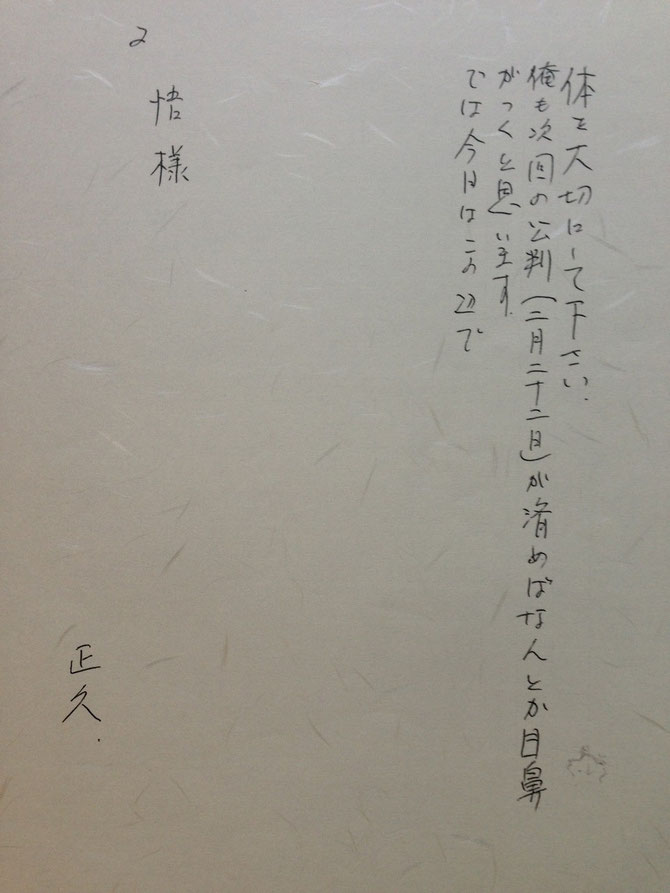 体を大切にして下さい.
俺も次回の公判(二月二十二日)が済めばなんとか目鼻
がつくと思います.
では今日はこの辺で
2
悟様
正久.